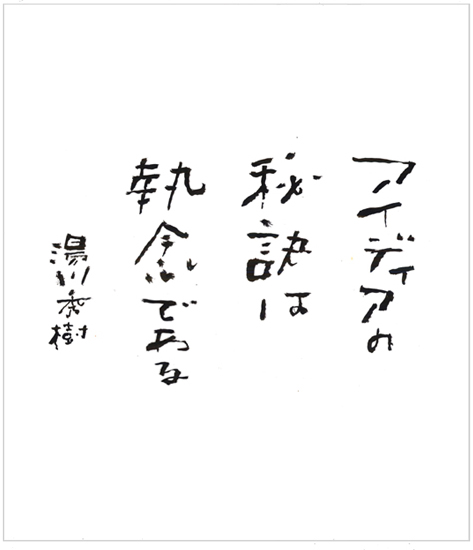 アイディアの
秘訣は
執念である
湯川秀樹